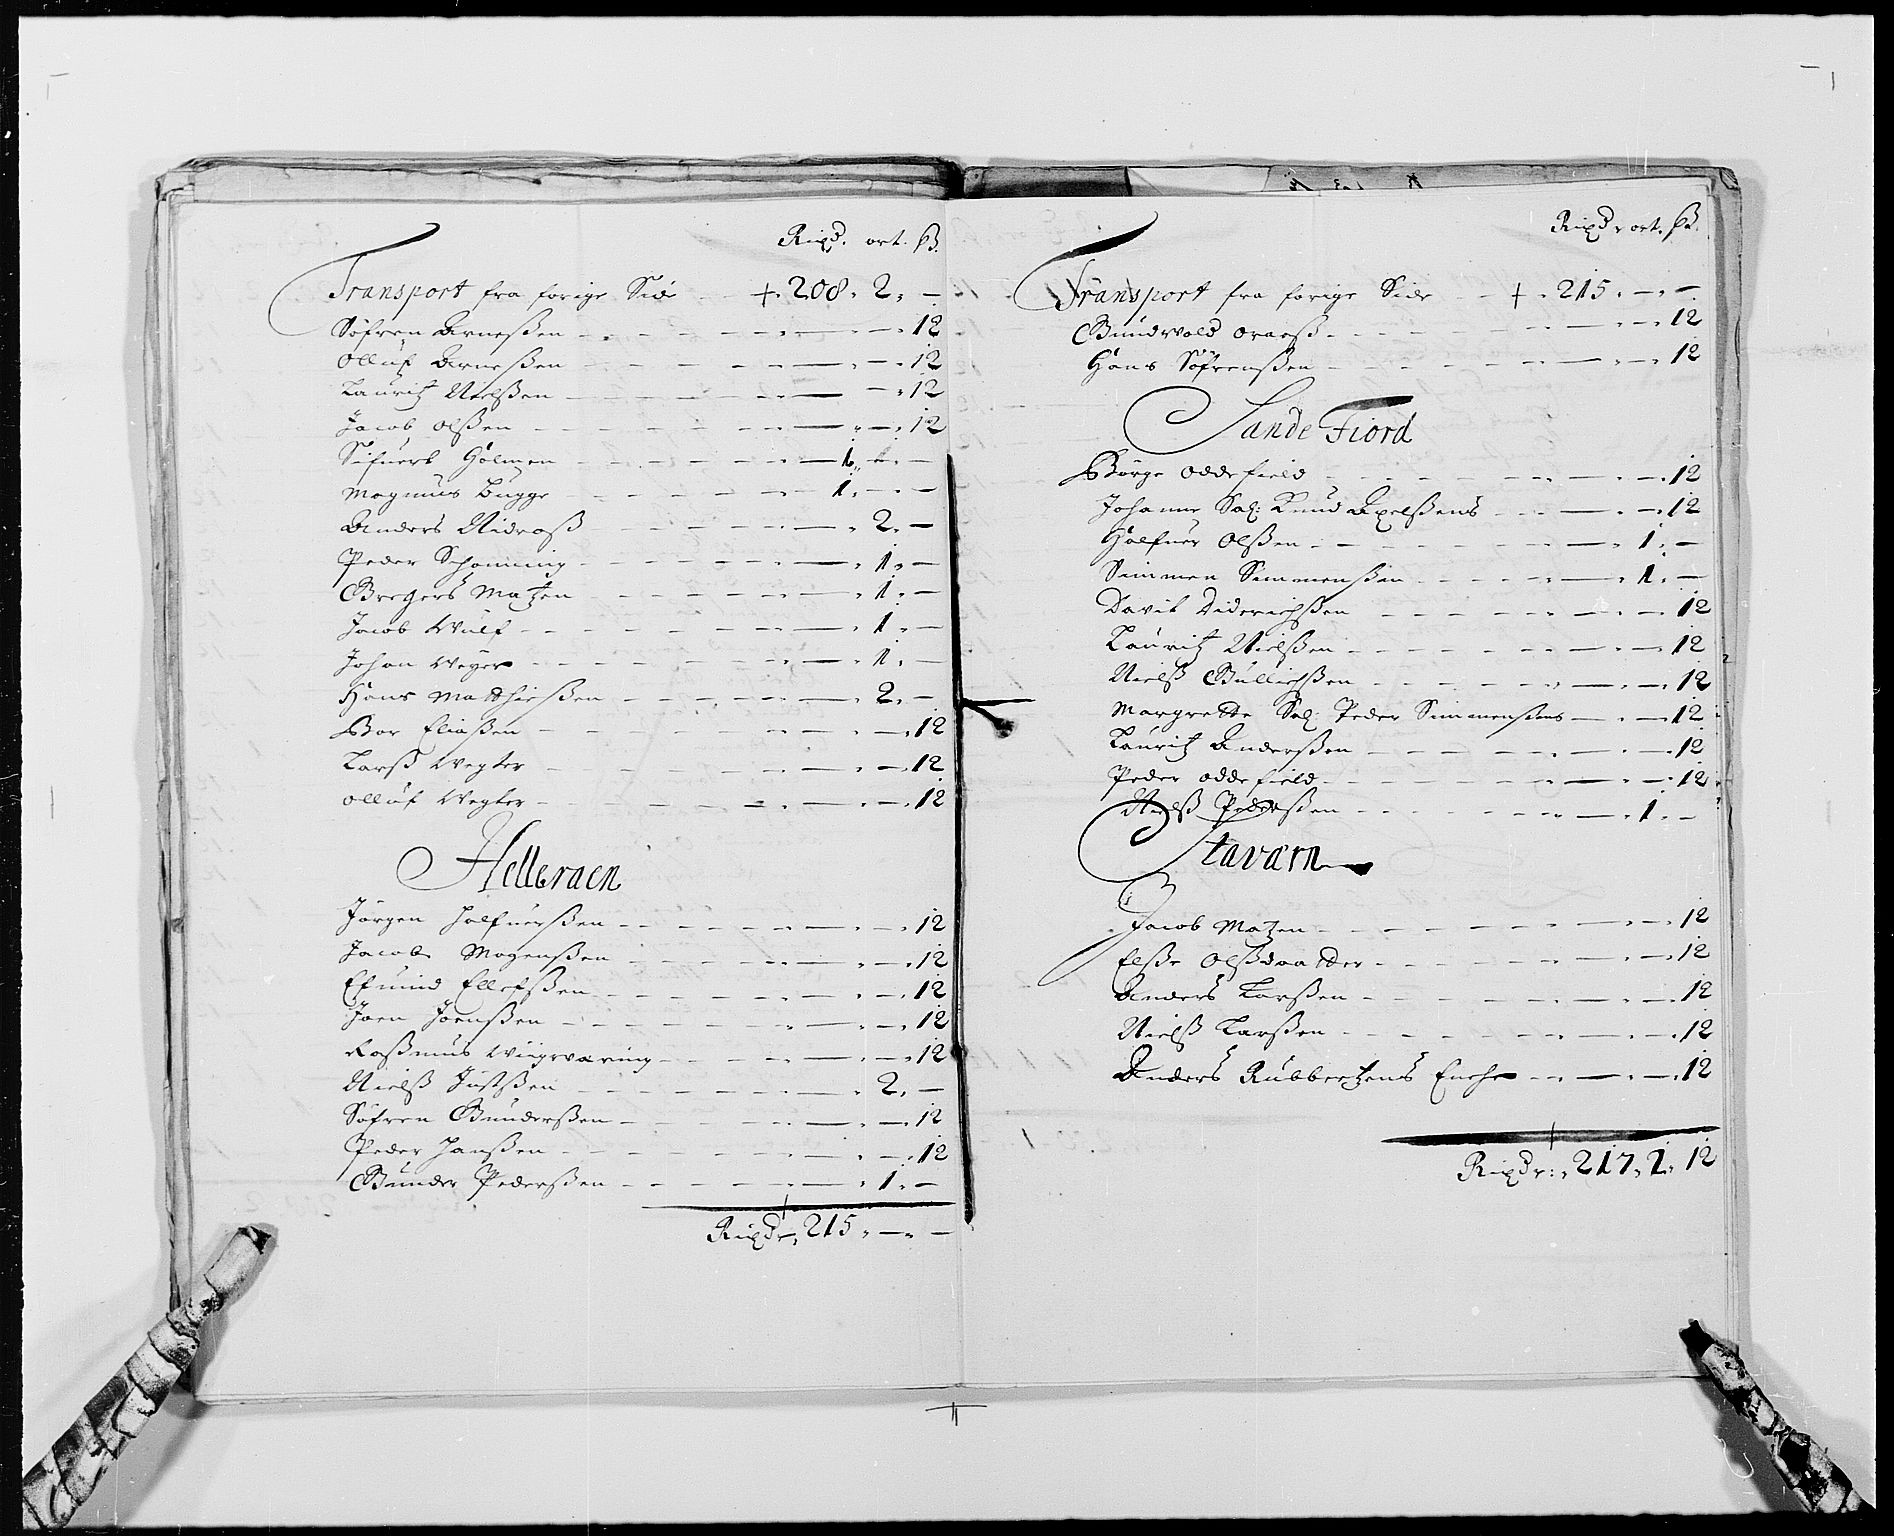 Rixd. ort. ß.
Transport fra forige Side + 208. 2. —
Söfren Arneßen — 12
Olluf Arneßen — 12
Lauritz Nielßen — 12
Jacob Olßen — 12
Sifuers Holmen — 1. —
Magnus Bugge — 1. — —
Anders Nidroß — 2. —
Peder Schonning — 1. —
Gregers Matzen — 1. —
Jacob Wulf — 1. —
Johan Weyer — 1. —
Hans Matthiesßen — 2. —
Bar Eliaßen — 12
Larß Wegter — 12
Olluf Wegter — 12
Helleraen
Jörgen Halfuerßen — 12
Jacob Mogenßen — 12
Efuind Ellefßen — 12
Joen Joenßen — 12
Raßmus — 12
Nielß Justßen — 2. —
Söfren Gunderßen — 12
Peder Hanßen — 12
Gunder Pederßen — 1. —
Rixdr. 215. — —
Rixdr. ort. ß.
Transport fra forige Side + 215. — —
Gundvold — 12
Hans Söfrenßen — 12
Sande Fiord
Börge Oddefield — 12
Johanne Sal: Knud Axelßens — 12
Halfuer Olßen — 1. —
Simmen Simmenßen — 1. —
Davit Diderichßen — 12
Lauritz Nielßen — 12
Nielß Gullichßen — 12
Margrette Sal: Peder Simmensens — 12
Lauritz Anderßen — 12
Peder Oddefield — 12
Nielß Pederßen — 1. —
Staværn
Jacob Matzen — 12
Elße Olßdaatter — 12
Anders Larßen — 12
Nielß Larßen — 12
Anders Rubbertzens Enche — 12
Rixdr: 217. 1. 12